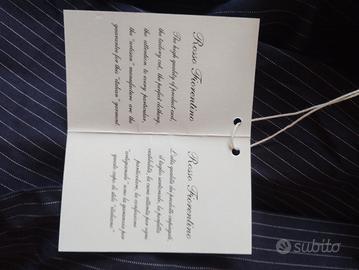 Rosso Fiorentino
The high quality of product used,
the tailory cut, the perfect clothing,
the attention to every particular,
the "artisan" manufacture are the
guarantees for this "italian" garment
Rosso Fiorentino
L'alta qualità dei prodotti impiegati,
il taglio sartoriale, la perfetta
vestibilità, la cura attenta per ogni
particolare, la confezione
"artigianale" sono la garanzia per
questo capo di stile "italiano"
subito